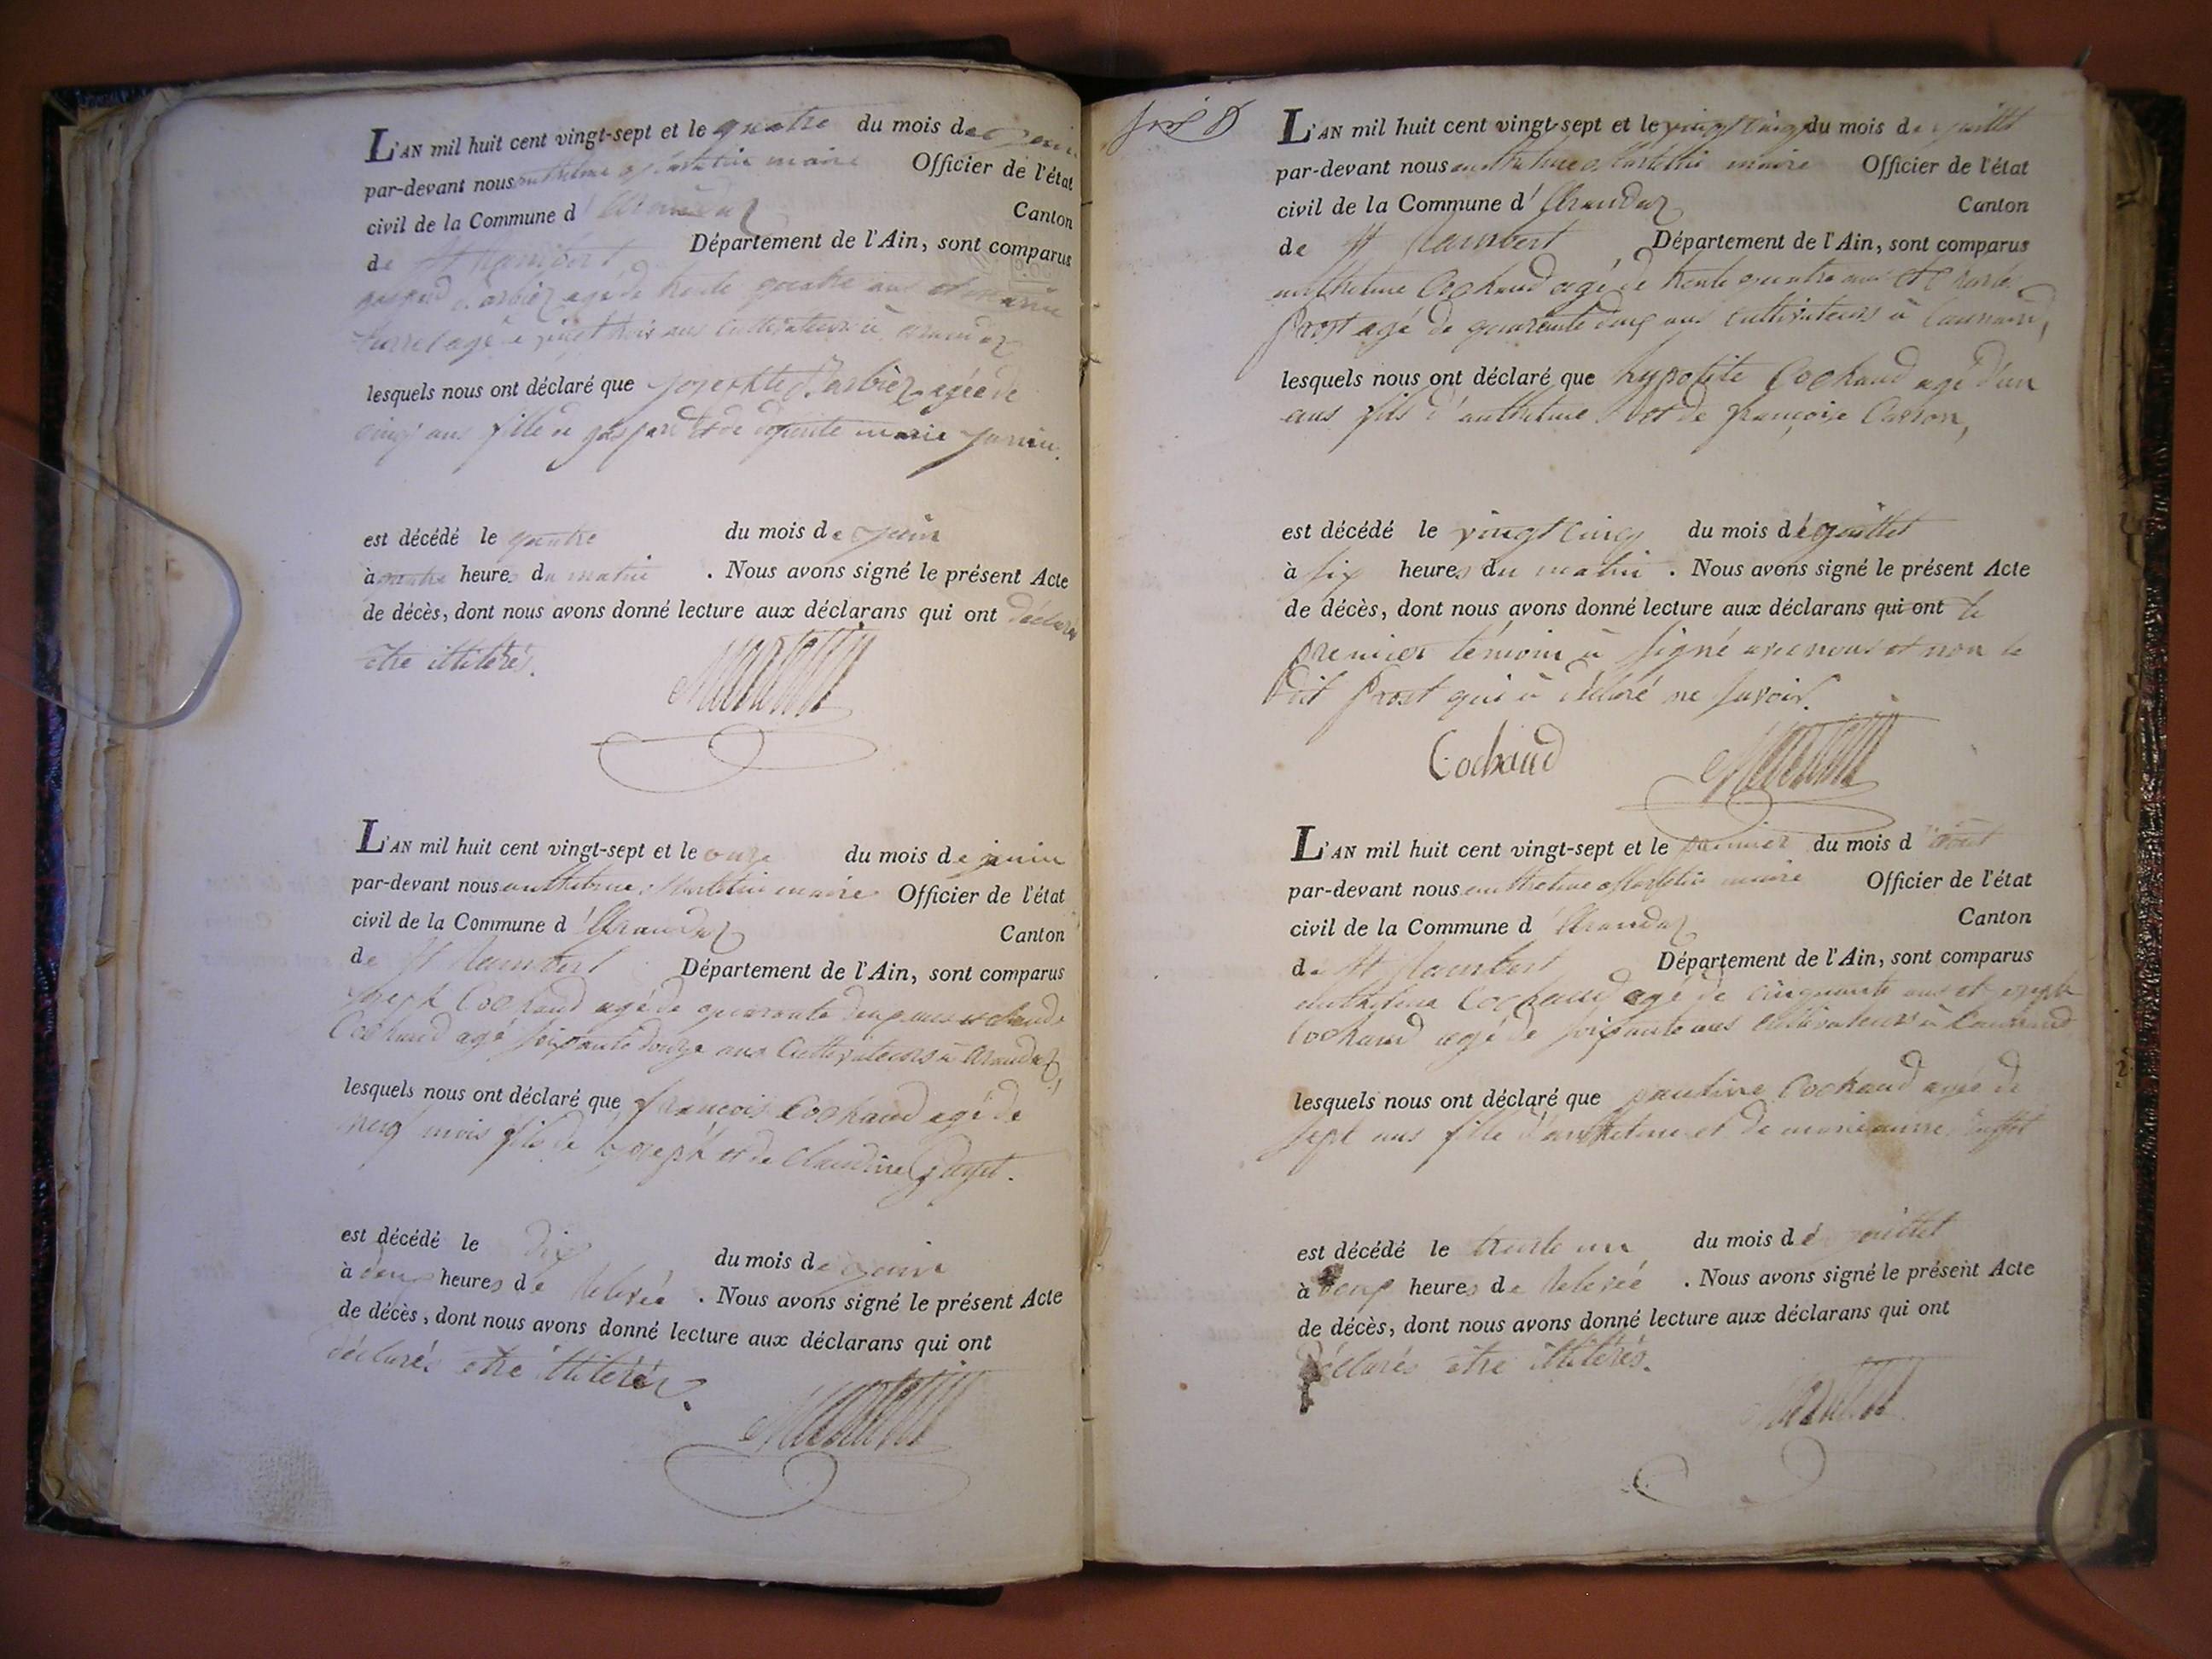 L'AN mil huit cent vingt-sept et le quatre du mois de juin
par-devant nous anthelme Martelin maire Officier de l'état
civil de la Commune d'Arandaz Canton
de St Rambert Département de l'Ain, sont comparus
gaspard Barbier agé de trente quatre ans et
agé vingt trois ans cultivateurs à arandaz
lesquels nous ont déclaré que Josephte Barbier agée de
cinq ans fille de gaspard et de marie
est décédé le quatre du mois de juin
à quatre heures du matin . Nous avons signé le présent Acte
de décès, dont nous avons donné lecture aux déclarans qui ont déclarés
etre illiterés.
L'AN mil huit cent vingt-sept et le onze du mois de juin
par-devant nous anthelme Martelin maire Officier de l'état
civil de la Commune d'Arandaz Canton
de St Rambert Département de l'Ain, sont comparus
joseph Cochaud agé de quarante deux ans et claude
Cochaud agé soixante douze ans Cultivateurs à Arandaz,
lesquels nous ont déclaré que françois Cochaud agé de
neuf mois fils de Joseph et de Claudine
est décédé le dix du mois de juin
à deux heures de relevée . Nous avons signé le présent Acte
de décès, dont nous avons donné lecture aux déclarans qui ont
déclarés etre illiterés.
L'AN mil huit cent vingt-sept et le vingt cinq du mois de juillet
par-devant nous anthelme Martelin maire Officier de l'état
civil de la Commune d'Arandaz Canton
de St Rambert Département de l'Ain, sont comparus
anthelme Cochaud agé de trente quatre ans et
Prost agé de quarante cinq ans cultivateurs à
lesquels nous ont déclaré que hypolite Cochaud agé d'un
ans fils d'anthelme et de françoise Carron,
est décédé le vingt cinq du mois de juillet
à six heures du matin . Nous avons signé le présent Acte
de décès, dont nous avons donné lecture aux déclarans qui ont le
premier témoin à signé avec nous et non le
dit Prost qui à déclaré ne savoir.
Cochaud
L'AN mil huit cent vingt-sept et le premier du mois d'aout
par-devant nous anthelme Martelin maire Officier de l'état
civil de la Commune d'Arandaz Canton
de St Rambert Département de l'Ain, sont comparus
anthelme Cochaud agé de cinquante ans et joseph
Cochaud agé de soixante ans cultivateurs à
lesquels nous ont déclaré que pauline Cochaud agée de
sept ans fille d'anthelme et de marianne
est décédé le trente un du mois de juillet
à deux heures de relevée . Nous avons signé le présent Acte
de décès, dont nous avons donné lecture aux déclarans qui ont
déclarés etre illiterés.